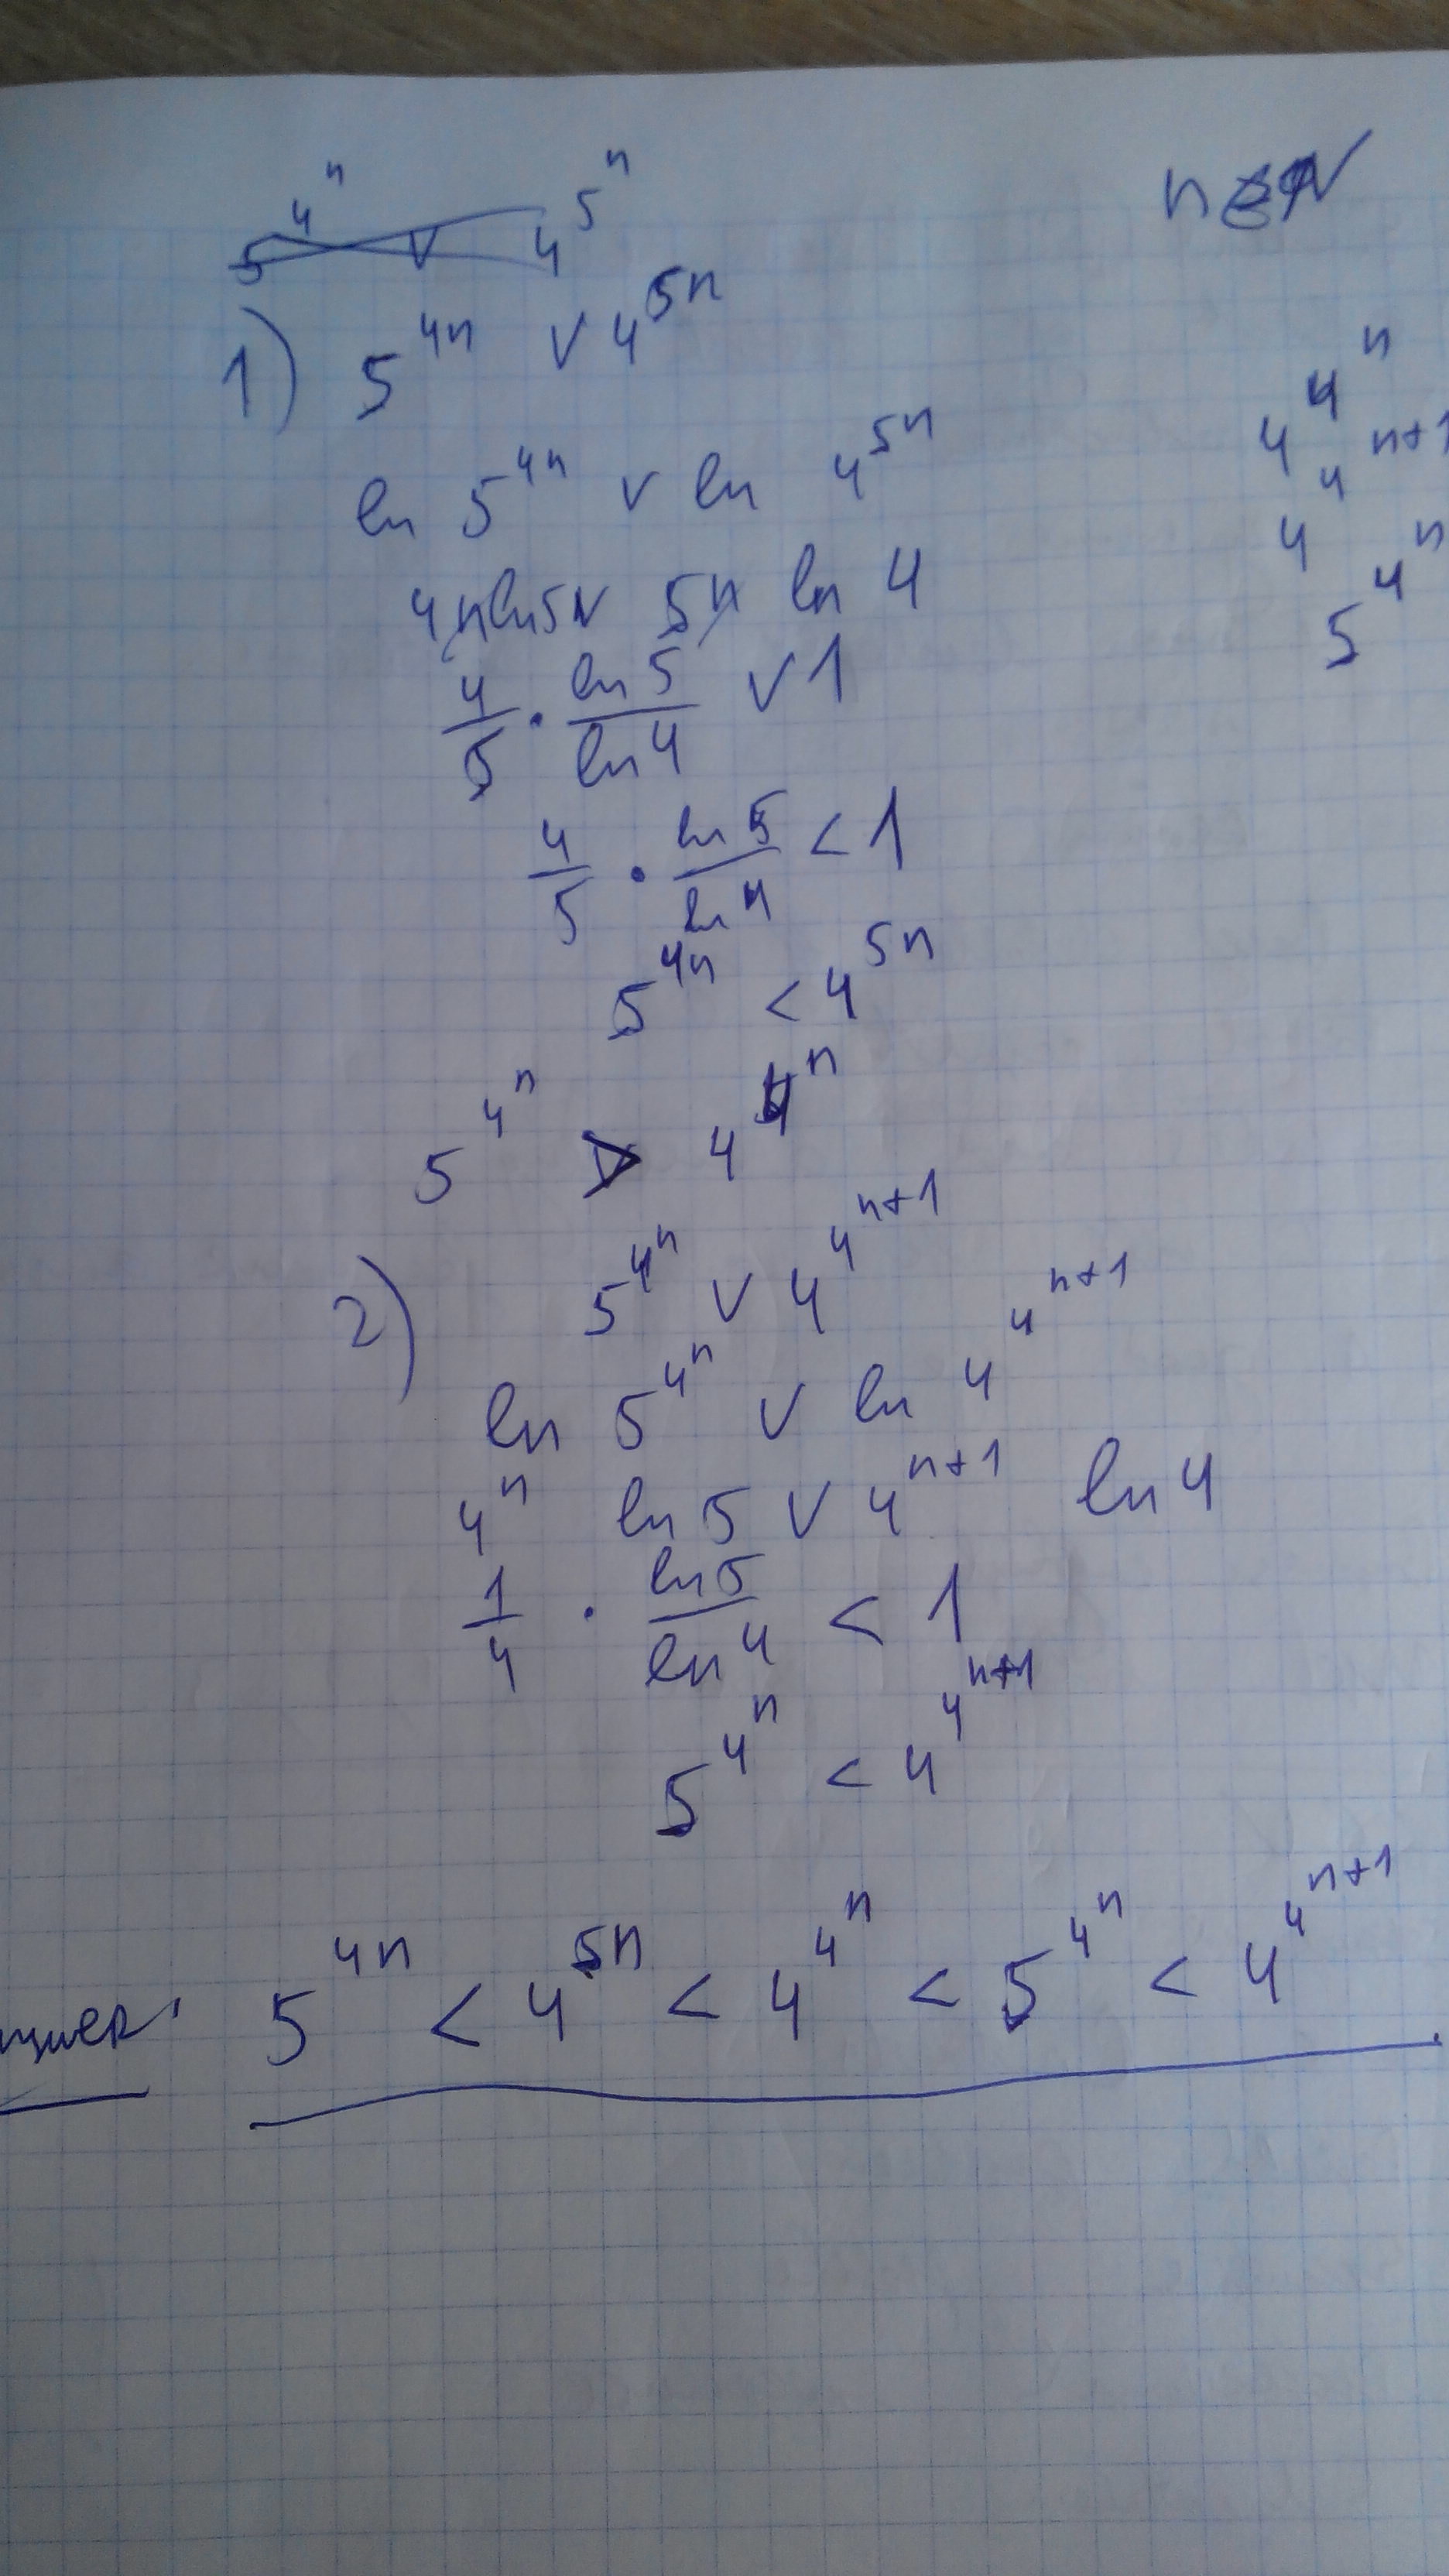 5^{4^n} ∨ 4^{5^n}
n ∈ N
1) 5^{4n} ∨ 4^{5n}
ln 5^{4n} ∨ ln 4^{5n}
4n ln 5 ∨ 5n ln 4
4/5 · ln 5/ln 4 ∨ 1
4/5 · ln 5/ln 4 < 1
5^{4n} < 4^{5n}
5^{4^n} > 4^{4^n}
4^{4^n}
4^{4^{n+1}}
5^{4^n}
2) 5^{4^n} ∨ 4^{4^{n+1}}
ln 5^{4^n} ∨ ln 4^{4^{n+1}}
4^n ln 5 ∨ 4^{n+1} ln 4
1/4 · ln 5/ln 4 < 1
5^{4^n} < 4^{4^{n+1}}
5^{4n} < 4^{5n} < 4^{4^n} < 5^{4^n} < 4^{4^{n+1}}